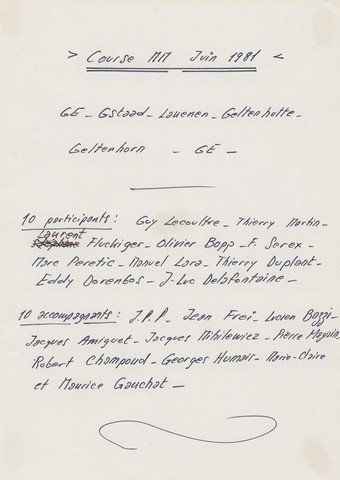 > Course MM Juin 1981 <
GE - Gstaad - Lauenen - Geltenhütte -
Geltenhorn - GE -
10 participants : Guy Lecoultre - Thierry Martin -
Laurent
Stéphane Fluckiger - Olivier Bopp - F. Serex -
Marc Peretic - Manuel Lara - Thierry Duplant -
Eddy Dorenbos - J-Luc Delafontaine -
10 accompagnants : J.P.P - Jean Frei - Lucien Bozzi -
Jacques Amiguet - Jacques Mihilewiez - Pierre
Robert Champoud - Georges Humais - Marie-Claire
et Maurice Gauchat -